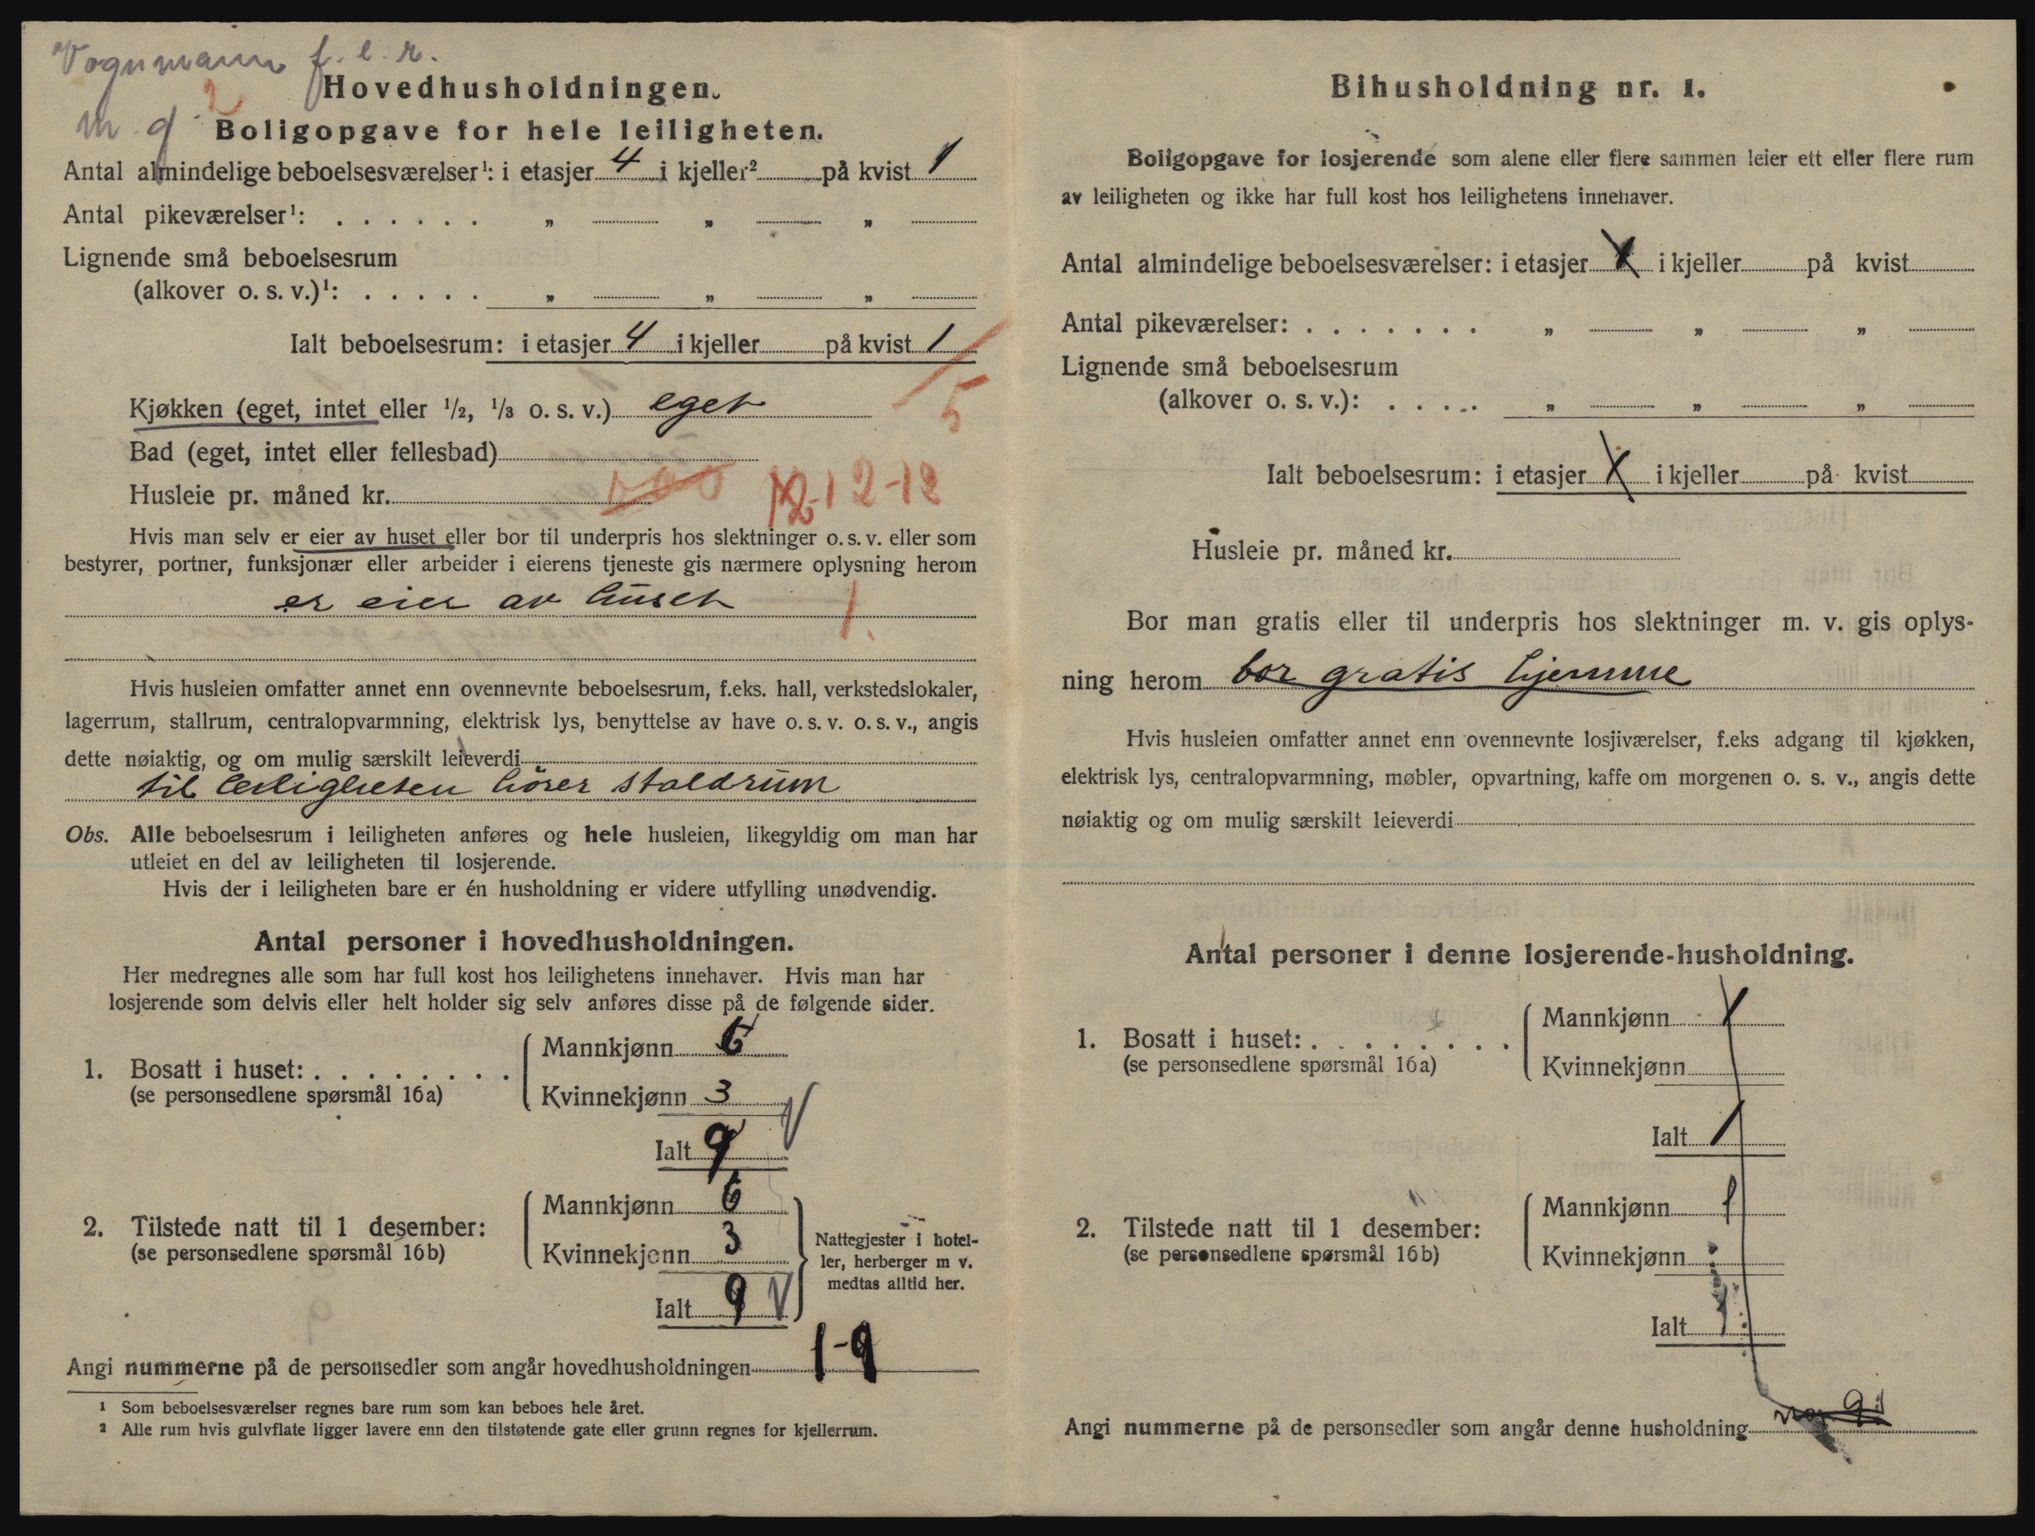 Vognmann f. e. r.
Hovedhusholdningen.
m. g. 2
Boligopgave for hele leiligheten.
Antal almindelige beboelsesværelser¹: i etasjer 4 i kjeller² på kvist 1
Antal pikeværelser¹: . . . . . . „ „ „
Lignende små beboelsesrum
(alkover o. s. v.)¹: . . . . . „ „ „
Ialt beboelsesrum: i etasjer 4 i kjeller på kvist 1
5
Kjøkken (eget, intet eller 1/2, 1/3 o. s. v.) eget
Bad (eget, intet eller fellesbad)
Husleie pr. måned kr. 12-12
Hvis man selv er eier av huset eller bor til underpris hos slektninger o. s. v. eller som
bestyrer, portner, funksjonær eller arbeider i eierens tjeneste gis nærmere oplysning herom
er eier av huset 1.
Hvis husleien omfatter annet enn ovennevnte beboelsesrum, f.eks. hall, verkstedslokaler,
lagerrum, stallrum, centralopvarmning, elektrisk lys, benyttelse av have o. s. v. o. s. v., angis
dette nøiaktig, og om mulig særskilt leieverdi
til leiligheten hörer staldrum
Obs. Alle beboelsesrum i leiligheten anføres og hele husleien, likegyldig om man har
utleiet en del av leiligheten til losjerende.
Hvis der i leiligheten bare er én husholdning er videre utfylling unødvendig.
Antal personer i hovedhusholdningen.
Her medregnes alle som har full kost hos leilighetens innehaver. Hvis man har
losjerende som delvis eller helt holder sig selv anføres disse på de følgende sider.
1. Bosatt i huset: . . . . . . . .
(se personsedlene spørsmål 16a)
Mannkjønn 6
Kvinnekjønn 3
Ialt 9
2. Tilstede natt til 1 desember:
(se personsedlene spørsmål 16b)
Mannkjønn 6
Kvinnekjønn 3
Ialt 9
Nattegjester i hotel-
ler, herberger m v.
medtas alltid her.
Angi nummerne på de personsedler som angår hovedhusholdningen 1-9
¹ Som beboelsesværelser regnes bare rum som kan beboes hele året.
² Alle rum hvis gulvflate ligger lavere enn den tilstøtende gate eller grunn regnes for kjellerrum.
Bihusholdning nr. 1.
Boligopgave for losjerende som alene eller flere sammen leier ett eller flere rum
av leiligheten og ikke har full kost hos leilighetens innehaver.
Antal almindelige beboelsesværelser: i etasjer 1 i kjeller på kvist
Antal pikeværelser: . . . . . . . „ „ „
Lignende små beboelsesrum
(alkover o. s. v.): . . . . „ „ „
Ialt beboelsesrum: i etasjer 1 i kjeller på kvist
Husleie pr. måned kr.
Bor man gratis eller til underpris hos slektninger m. v. gis oplys-
ning herom bor gratis hjemme
Hvis husleien omfatter annet enn ovennevnte losjiværelser, f.eks adgang til kjøkken,
elektrisk lys, centralopvarmning, møbler, opvartning, kaffe om morgenen o. s. v., angis dette
nøiaktig og om mulig særskilt leieverdi
Antal personer i denne losjerende-husholdning.
1. Bosatt i huset: . . . . . . . .
(se personsedlene spørsmål 16a)
Mannkjønn 1
Kvinnekjønn
Ialt 1
2. Tilstede natt til 1 desember:
(se personsedlene spørsmål 16b)
Mannkjønn 1
Kvinnekjønn
Ialt 1
Angi nummerne på de personsedler som angår denne husholdning